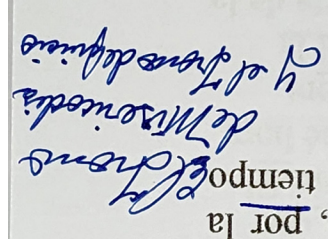 , por la
tiempo
El Trono
de Misericordia
y el Trono de juicio